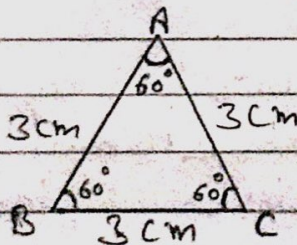 A
60°
3 cm 3 cm
60° 60°
B 3 cm C